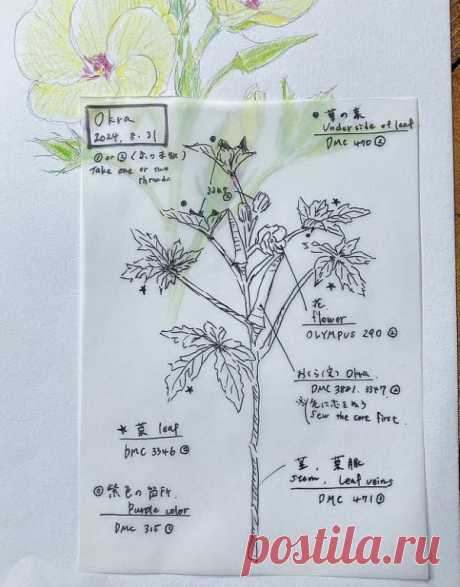 Okra
2024. 8. 31
①or② (糸の本数)
Take one or two
threads
● 葉の裏
Underside of leaf
DMC 470 ②
花
flower
OLYMPUS 290 ②
おくら(実) Okra.
3347 ②
※先に芯をぬう
Sew the core first.
★ 葉 leaf
DMC 3346 ②
◎ 紫色の箇所.
Purple color
DMC 315 ①
茎、葉脈
Stem, leaf veins
DMC 471 ①
postila.ru